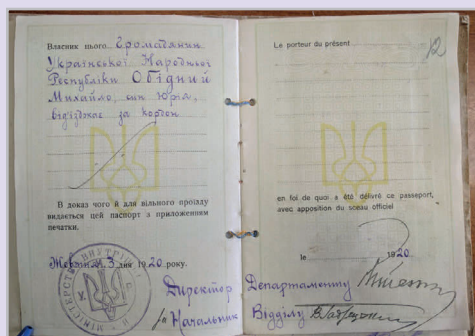 Власник цього Громадянин
Української Народньої
Республіки Обідний
Михайло, син Юрія,
від'їжжає за кордон
В доказ чого й для вільного проїзду
видається цей паспорт з приложенням
печатки.
Жовтня 3 дня 1920 року.
Директор
Начальник
МІНІСТЕРСТВО ВНУТР
Le porteur du présent
12
en foi de quoi a été délivré ce passeport,
avec apposition du sceau officiel
le 1920
Департаменту
Відділу